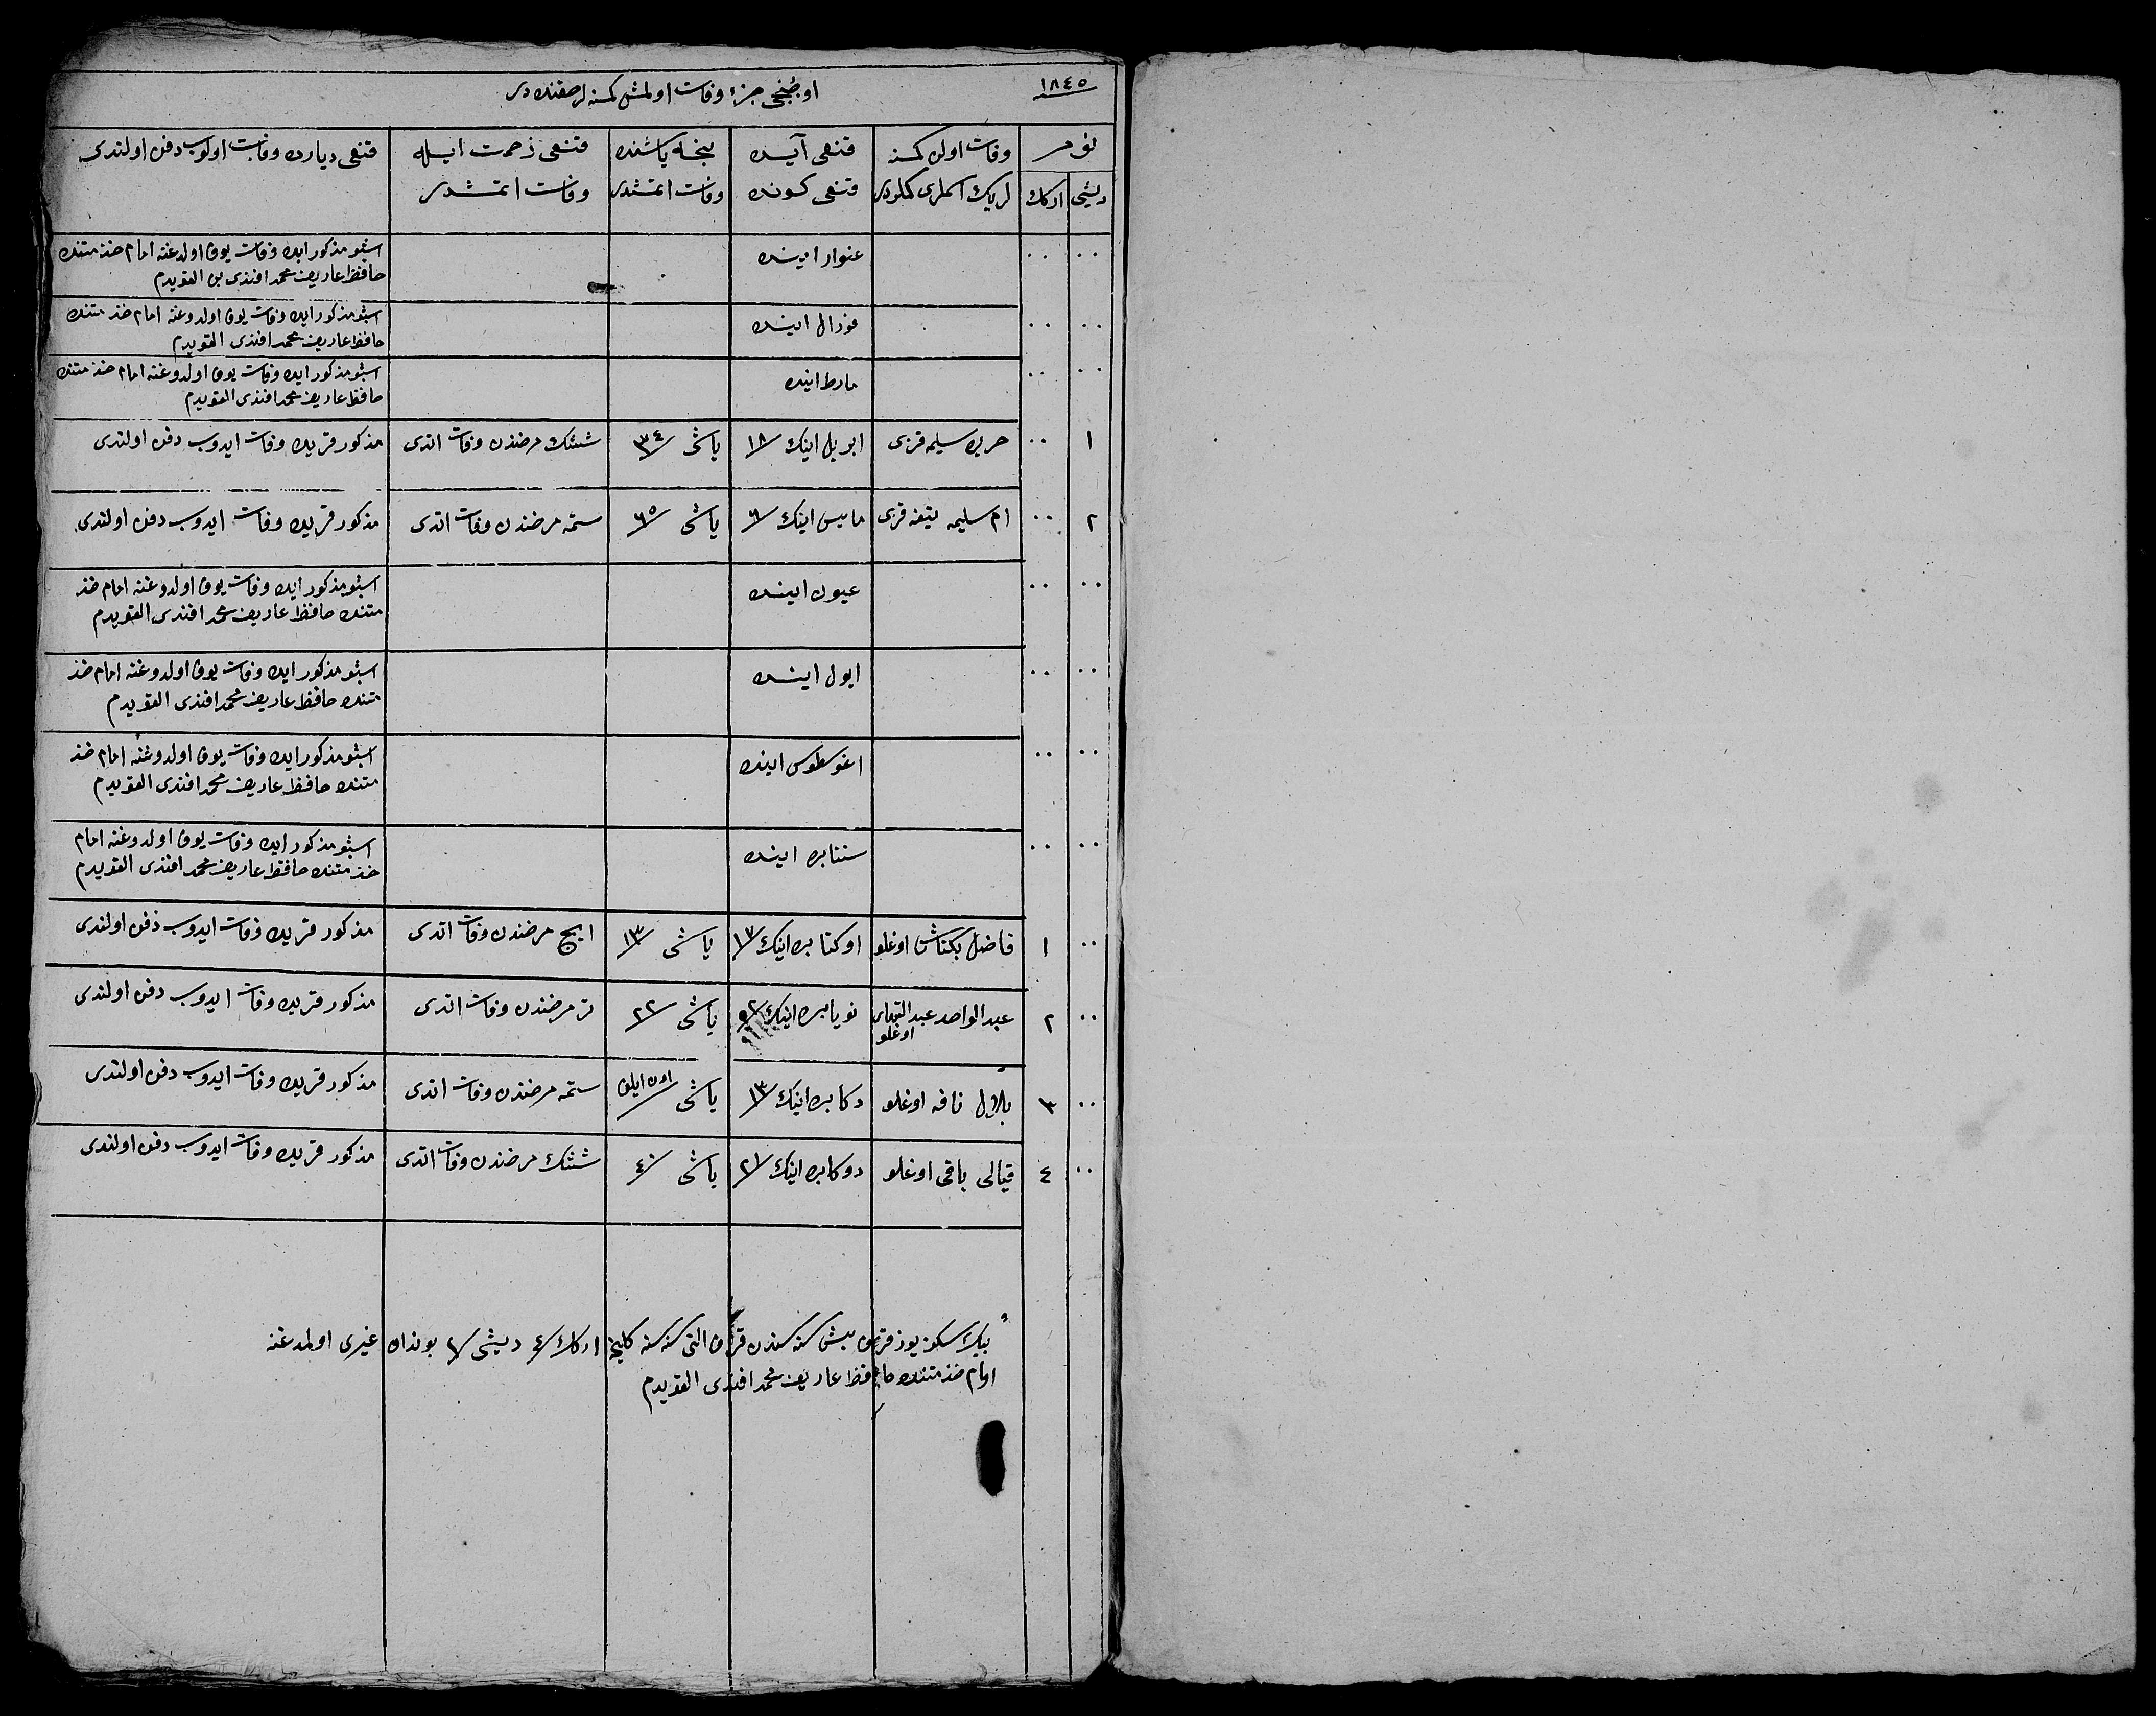 ١٨٤٥
اوچنجی جزء وفات اولمش کمسنه لر حقنده در
نومر
دیشی ارکک
وفات اولن کمسنه لریك اسملری کملردر
قنغی آیده قنغی کونده
نیجه یاشنده وفات اتمشدر
قنغی زحمت ایله وفات اتمشدر
قنغی دیارده وفات اولوب دفن اولندی
.. .. غنوار اینده
اشبو مذکور ایده وفات یوق اولدغنه امام خذمتنده
حافظ عاریف محمد افندی بن القویدم
.. .. فورال اینده
اشبو مذکور ایده وفات یوق اولدوغنه امام خذمتنده
حافظ عاریف محمد افندی القویدم
.. .. مارط اینده
اشبو مذکور ایده وفات یوق اولدوغنه امام خذمتنده
حافظ عاریف محمد افندی القویدم
١ .. حریره سلیمه قزی ابریل اینك ١٨ یاشی ٣٤ ششك مرضندن وفات اتدی مذکور قریده وفات ایدوب دفن اولندی
٢ .. ام سلیمه قزی مایس اینك ٦ یاشی ٦٥ ستمه مرضندن وفات اتدی مذکور قریده وفات ایدوب دفن اولندی
.. .. عیون اینده
اشبو مذکور ایده وفات یوق اولدوغنه امام خذ
متنده حافظ عاریف محمد افندی القویدم
.. .. ایول اینده
اشبو مذکور ایده وفات یوق اولدوغنه امام خذ
متنده حافظ عاریف محمد افندی القویدم
.. .. اغوسطوس اینده
اشبو مذکور ایده وفات یوق اولدوغنه امام خذ
متنده حافظ عاریف محمد افندی القویدم
.. .. سنتابره اینده
اشبو مذکور ایده وفات یوق اولدوغنه امام
خذمتنده حافظ عاریف محمد افندی القویدم
.. ١ فاضل بکتاش اوغلو اوکتابره اینك ١٧ یاشی ١٣ ایچ مرضندن وفات اتدی مذکور قریده وفات ایدوب دفن اولندی
.. ٢ عبد الواحد اوغلو نویابره اینك یاشی ٢٢ تر مرضندن وفات اتدی مذکور قریده وفات ایدوب دفن اولندی
.. ٣ بلال نافه اوغلو دکابره اینك ١٣ یاشی اون ایلق ستمه مرضندن وفات اتدی مذکور قریده وفات ایدوب دفن اولندی
.. ٤ قیالی باقی اوغلو دوکابره اینك ٢١ یاشی ٤٠ ششك مرضندن وفات اتدی مذکور قریده وفات ایدوب دفن اولندی
بیك سکز یوز قرق بش سنه سندن قرق التی سنه سنه کلینجه ارکك ٤ دیشی ٢ بوندان غیری اولمدغنه
امام خذمتنده حافظ عاریف محمد افندی القویدم